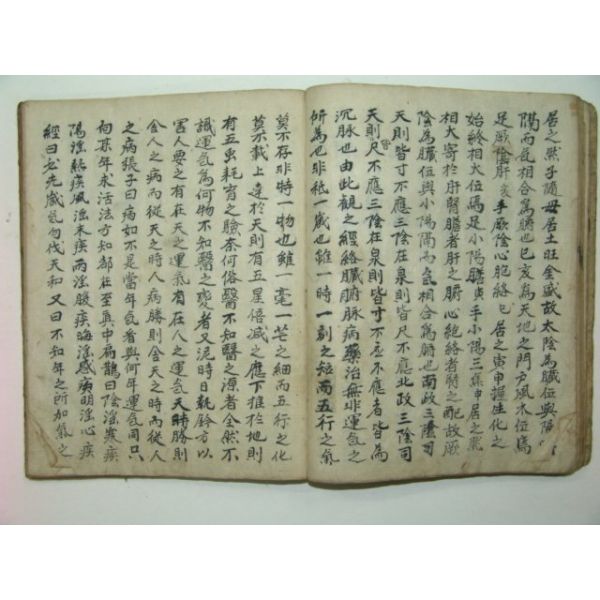 居之然子隨母居土旺金盛故太陰爲臟位與陽明
隔而氣相合爲腑也巳亥爲天地之門戶風木位焉
足厥陰肝亥手厥陰心胞絡巳居之寅申握生化之
始終相火位焉足少陽膽寅手少陽三焦申居之然
相火寄於肝腎膽者肝之腑心包絡者腎之配故厥
陰爲臟位與少陽隔而氣相合爲腑也南政三陰司
天則皆寸不應三陰在泉則皆尺不應北政三陰司
天則尺不應三陰在泉則皆寸不應不應者皆爲
沉脉也由此觀之經絡臟腑脉病藥治無非運氣之
所爲也非秪一歲也雖一時一刻之短而五行之氣
莫不存非特一物也雖一毫一芒之細而五行之化
莫不載上達於天則有五星倍减之應下推於地則
有五虫耗育之驗奈何俗醫不知醫之源者全然不
識運氣爲何物不知醫之變者又泥時日執鈐方以
害人要之有在天之運氣有在人之運氣天時勝則
舍人之病而從天之時人病勝則舍天之時而從人
之病張子曰病如不是當年氣看與何年運氣同只
向某年求活法方知都在至眞中扁鵲曰陰淫寒疾
陽淫熱疾風淫末疾雨淫腹疾晦淫惑疾明淫心疾
經曰必先歲氣勿伐天和又曰不知年之所加氣之